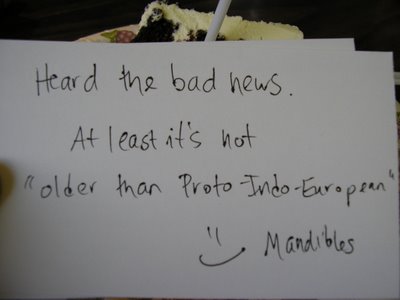 Heard the bad news.
At least it's not
"older than Proto-Indo-European"
Mandibles